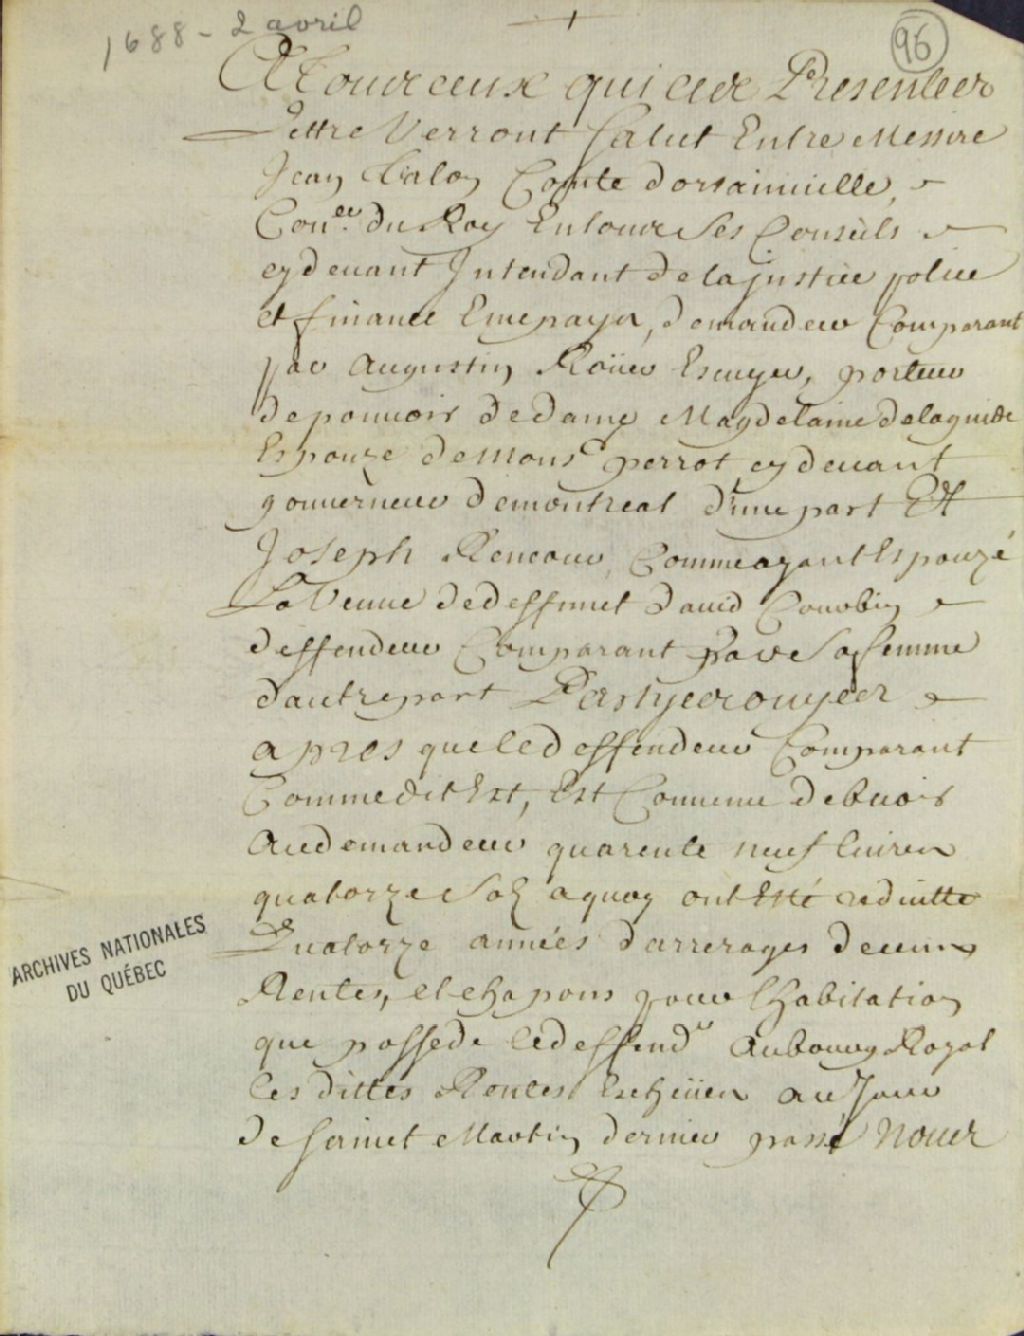 1688 - 2 avril
96
A Tous ceux qui ces Presentes
Lettre Verront Salut Entre Messire
Jean Talon Comte dorsainuille,
Conser. du Roy En tous Ses Conseils
cy deuant Intendant de la justice police
et finance En ce pays, demandeur Comparant
par Augustin Roüer Escuyer, porteur
de pouuoir de dame Magdelaine de laguide
Espouze de Monsr perrot cy deuant
gouuerneur de montreal d'une part Et
Joseph Rencour, Comme ayant Espouzé
La Veuue de deffunct dauid Courbin
deffendeur Comparant par Sa femme
d'autre part Partyes ouyes
apres que le deffendeur Comparant
Comme dit Est, Est Conuenu debuoir
Au demandeur quarente neuf liures
quatorze Solz a quoy ont Esté reduitte
Quatorze années d'arrerages de cens
Rentes, et chapons pour l'habitation
que possede le deffendr Au bourg Royal
les dittes Rentes Escheües au Jour
de sainct Martin dernier passé Nous
ARCHIVES NATIONALES
DU QUÉBEC